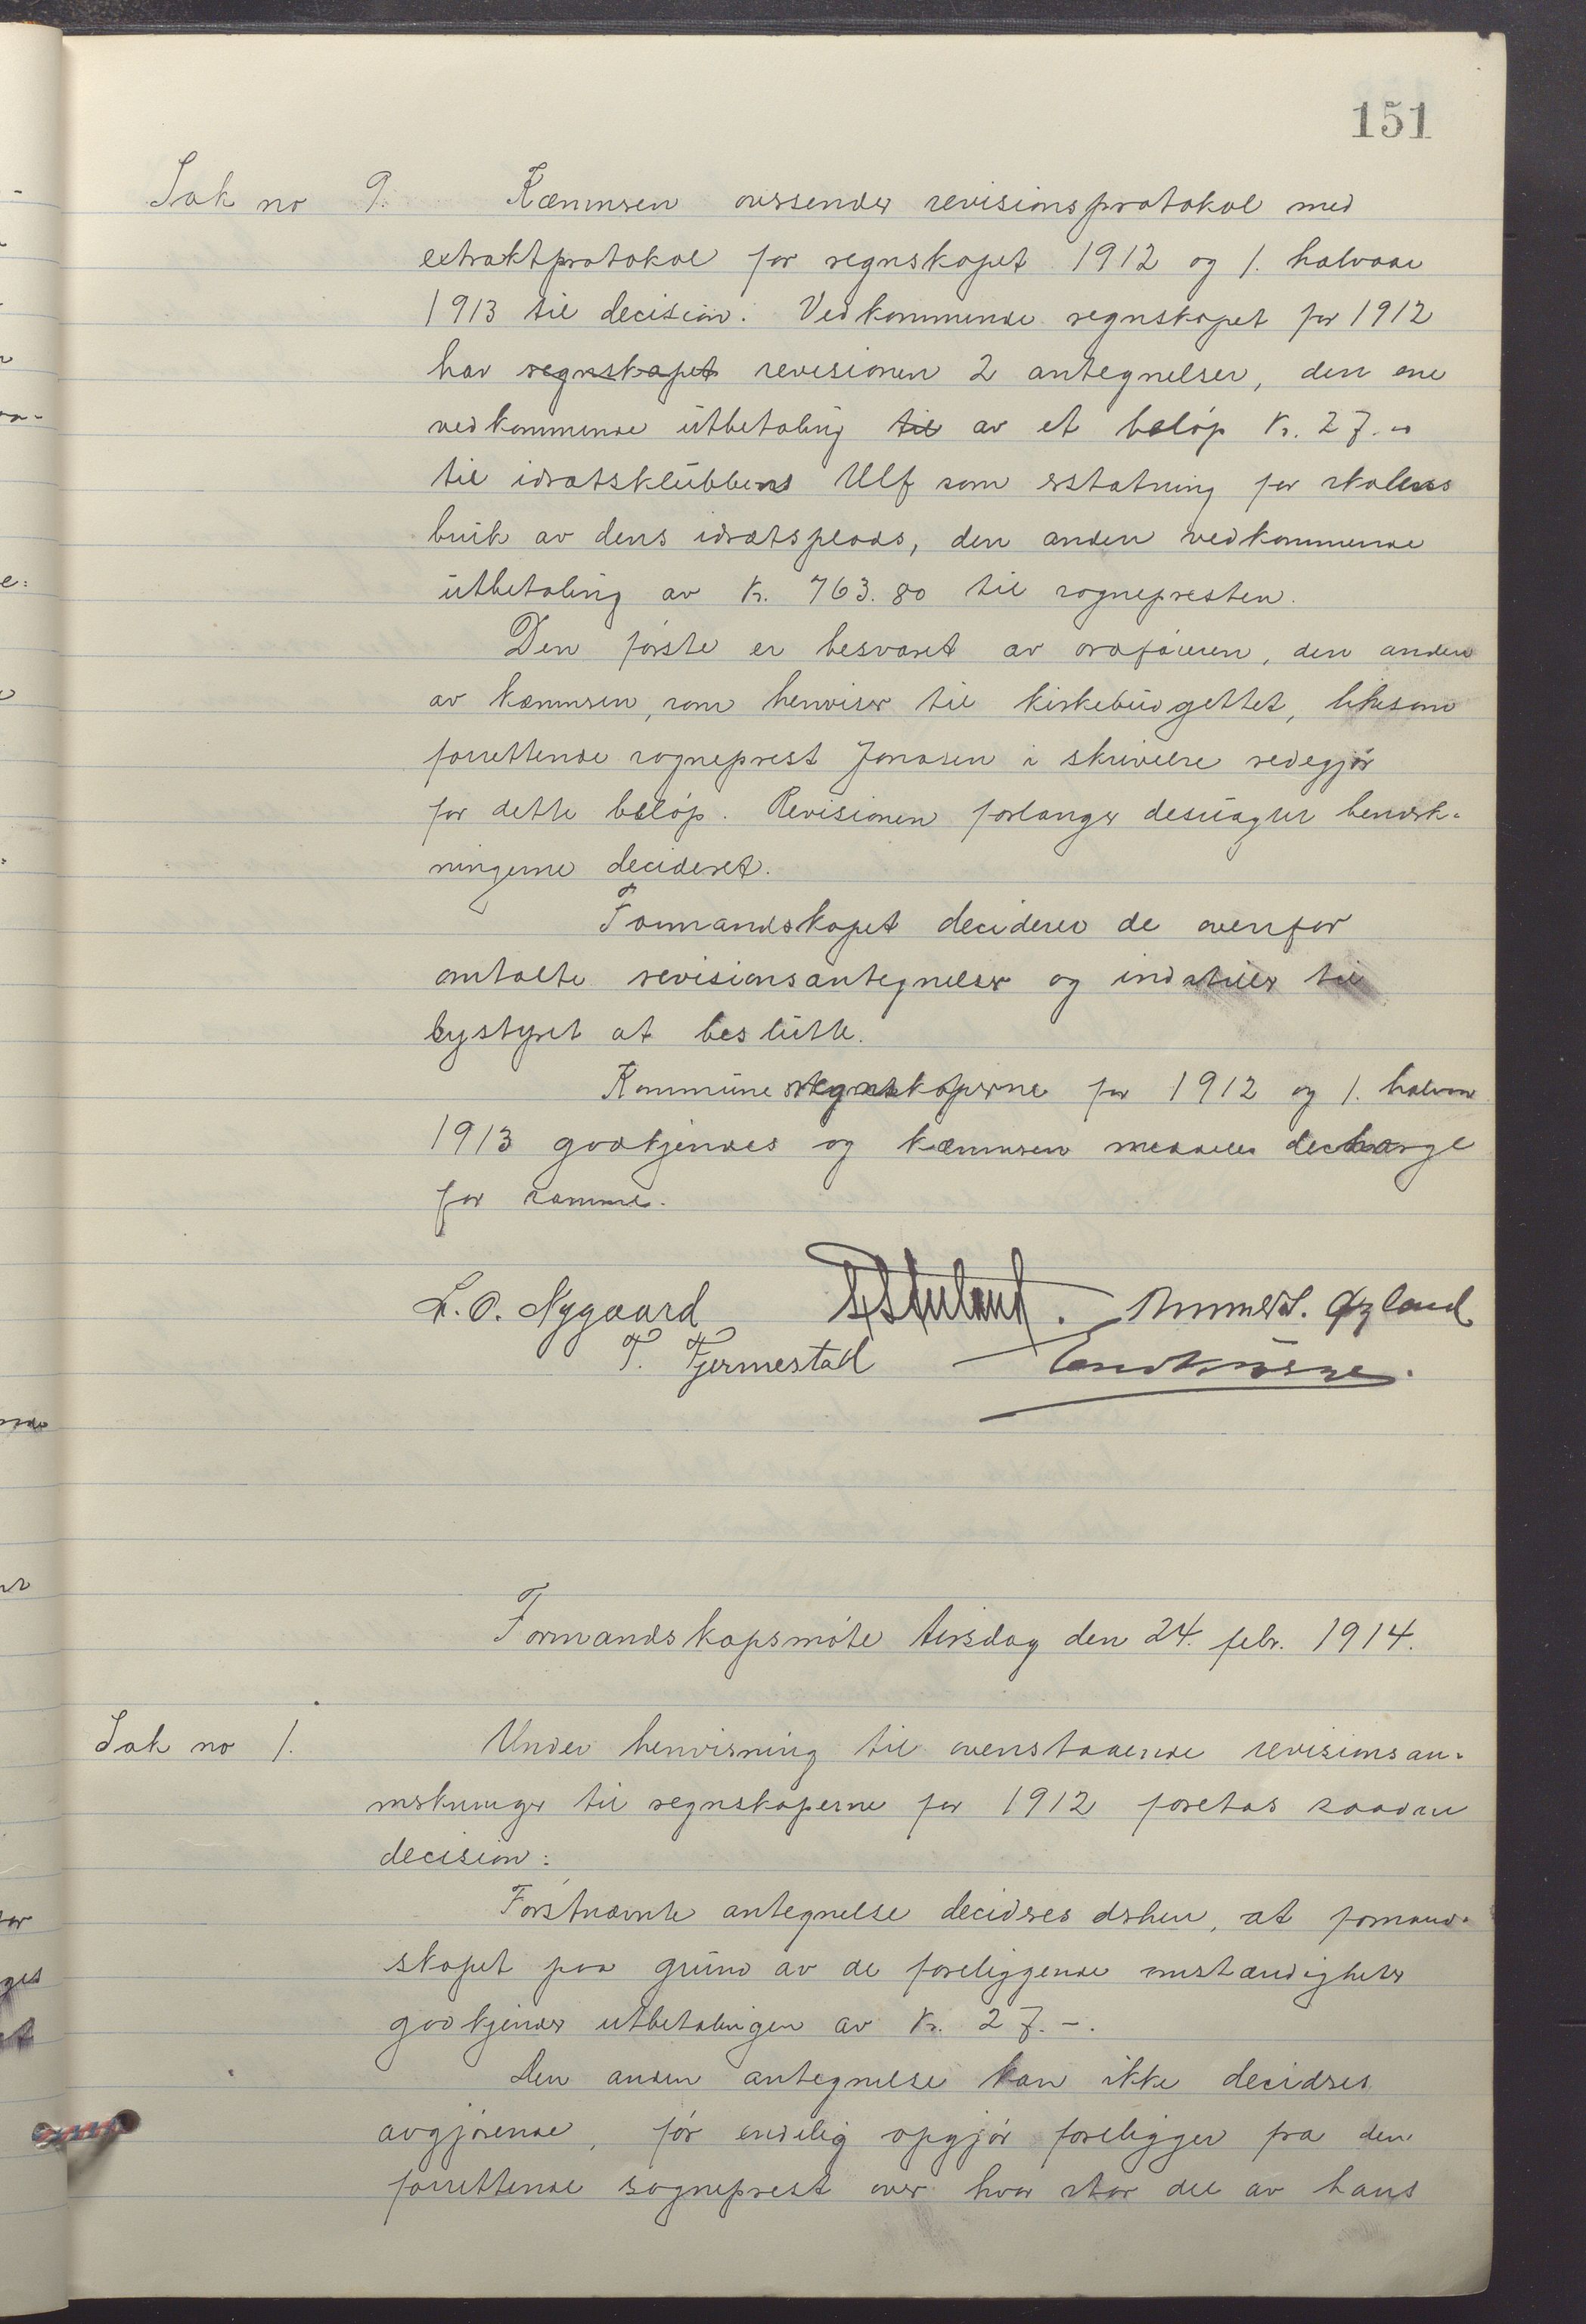 151
Sak no 9. Kæmnren oversender revisionsprotokol med
extraktprotokol for regnskapet 1912 og 1. halvaar
1913 til decision. Vedkommende regnskapet for 1912
har regnskapet revisionen 2 antegnelser, den ene
vedkommende utbetaling til av et beløp kr. 27.-
til idrætsklubbens Ulf som erstatning for skolens
bruk av dens idrætsplads, den anden vedkommende
utbetaling av kr. 763.80 til sognepresten.
Den første er besvaret av ordføreren, den anden
av kæmnren, som henviser til kirkebudgettet, likesom
forrettende sogneprest Jonasen i skrivelse redegjør
for dette beløp. Revisionen forlanger desuagtet bemerk-
ningerne decideret.
Formandskapet deciderer de ovenfor
omtalte revisionsantegnelser og indstiller til
bystyret at beslutte.
Kommuneregnskaperne for 1912 og 1. halvaar
1913 godkjendes og kæmnren meddeles decharge
for samme.
L. O. Nygaard Øgland
T. Tjermestad
Formandskapsmøte tirsdag den 24. febr. 1914.
Sak no 1. Under henvisning til ovenstaaende revisionsan-
merkninger til regnskaperne for 1912 foretas saadan
decision:
Førstnævnte antegnelse decideres derhen, at formand-
skapet paa grund av de foreliggende omstændigheter
godkjender utbetalingen av kr. 27.-.
Den anden antegnelse kan ikke decideres
avgjørende, før endelig opgjør foreligger fra den
forrettende sogneprest over hvor stor del av hans